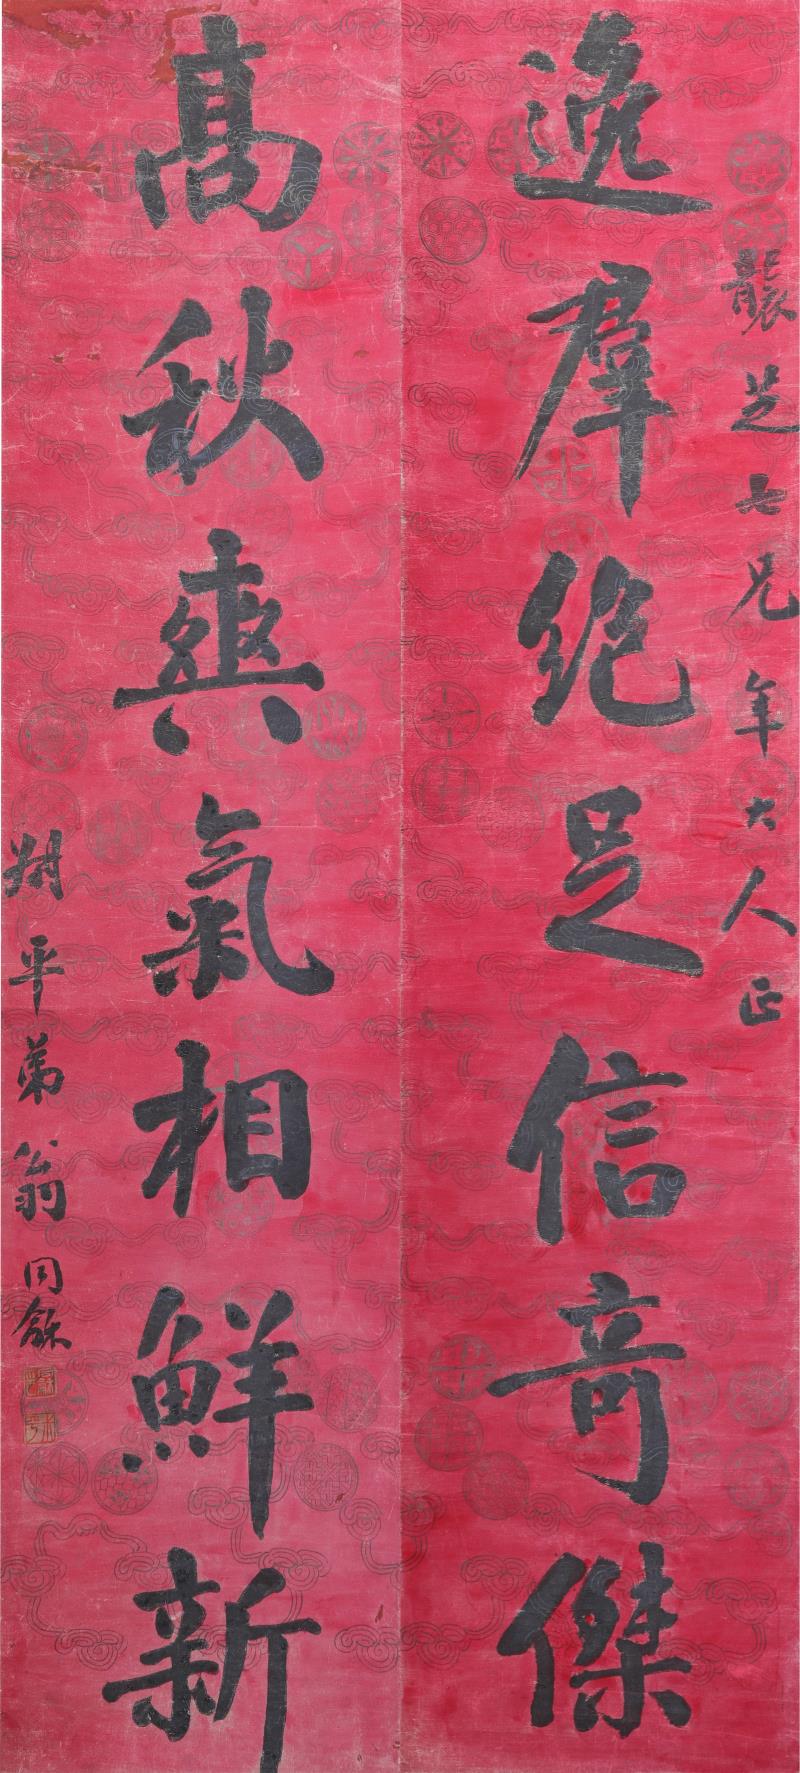 龔芝七兄年大人正
逸羣絶足信奇傑
高秋爽氣相鮮新
叔平弟翁同龢